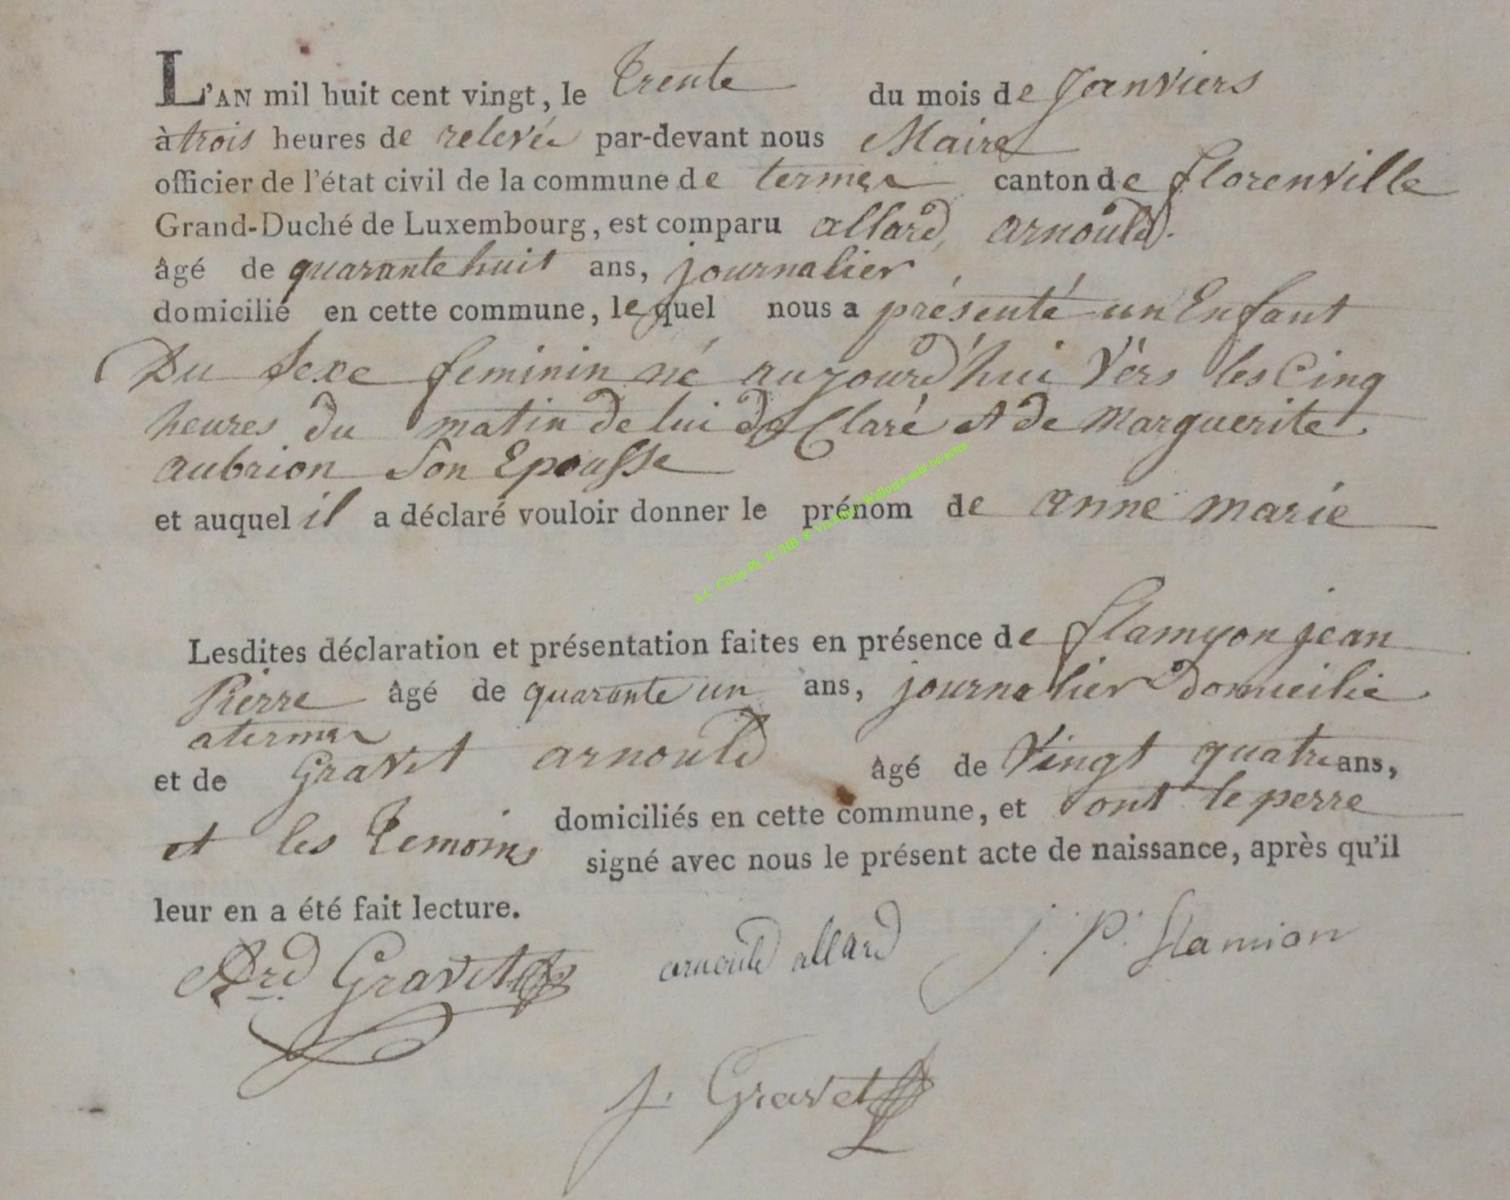 L'AN mil huit cent vingt, le trente du mois de Janviers
à trois heures de relevée par-devant nous Maire
officier de l'état civil de la commune de termes canton de florenville
Grand-Duché de Luxembourg, est comparu allard, arnould.
âgé de quarante huit ans, journalier
domicilié en cette commune, lequel nous a présenté un Enfant
Du Sexe feminin né aujourd'hui Vers les Cinq
heures du matin de lui déClaré et de Marguerite
aubrion Son Epousse
et auquel il a déclaré vouloir donner le prénom de anne marie
Lesdites déclaration et présentation faites en présence de flamyon jean
Pierre âgé de quarante un ans, journalier domicilié
a termes
et de Gravet arnould âgé de Vingt quatre ans,
domiciliés en cette commune, et ont le perre
et les temoins signé avec nous le présent acte de naissance, après qu'il
leur en a été fait lecture.
Ard Gravet arnould allard j. P. flamion
J. Gravet